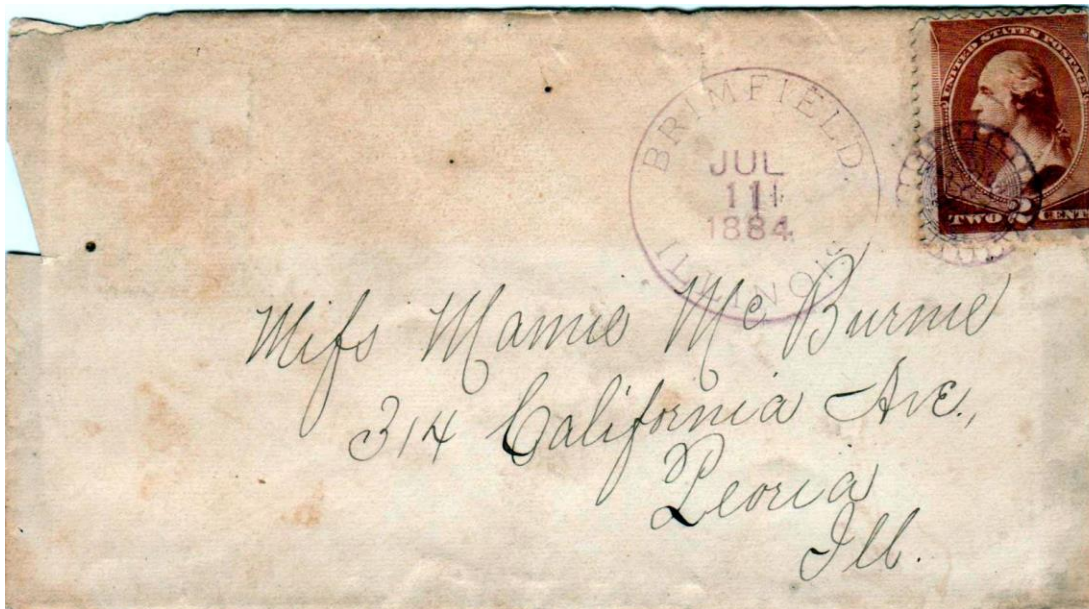 BRIMFIELD.
JUL
11
1884
ILLINOIS
UNITED STATES POSTAGE
TWO 2 CENT
Miſs Mamie Mc Burnie
314 California Ave.,
Peoria
Ill.